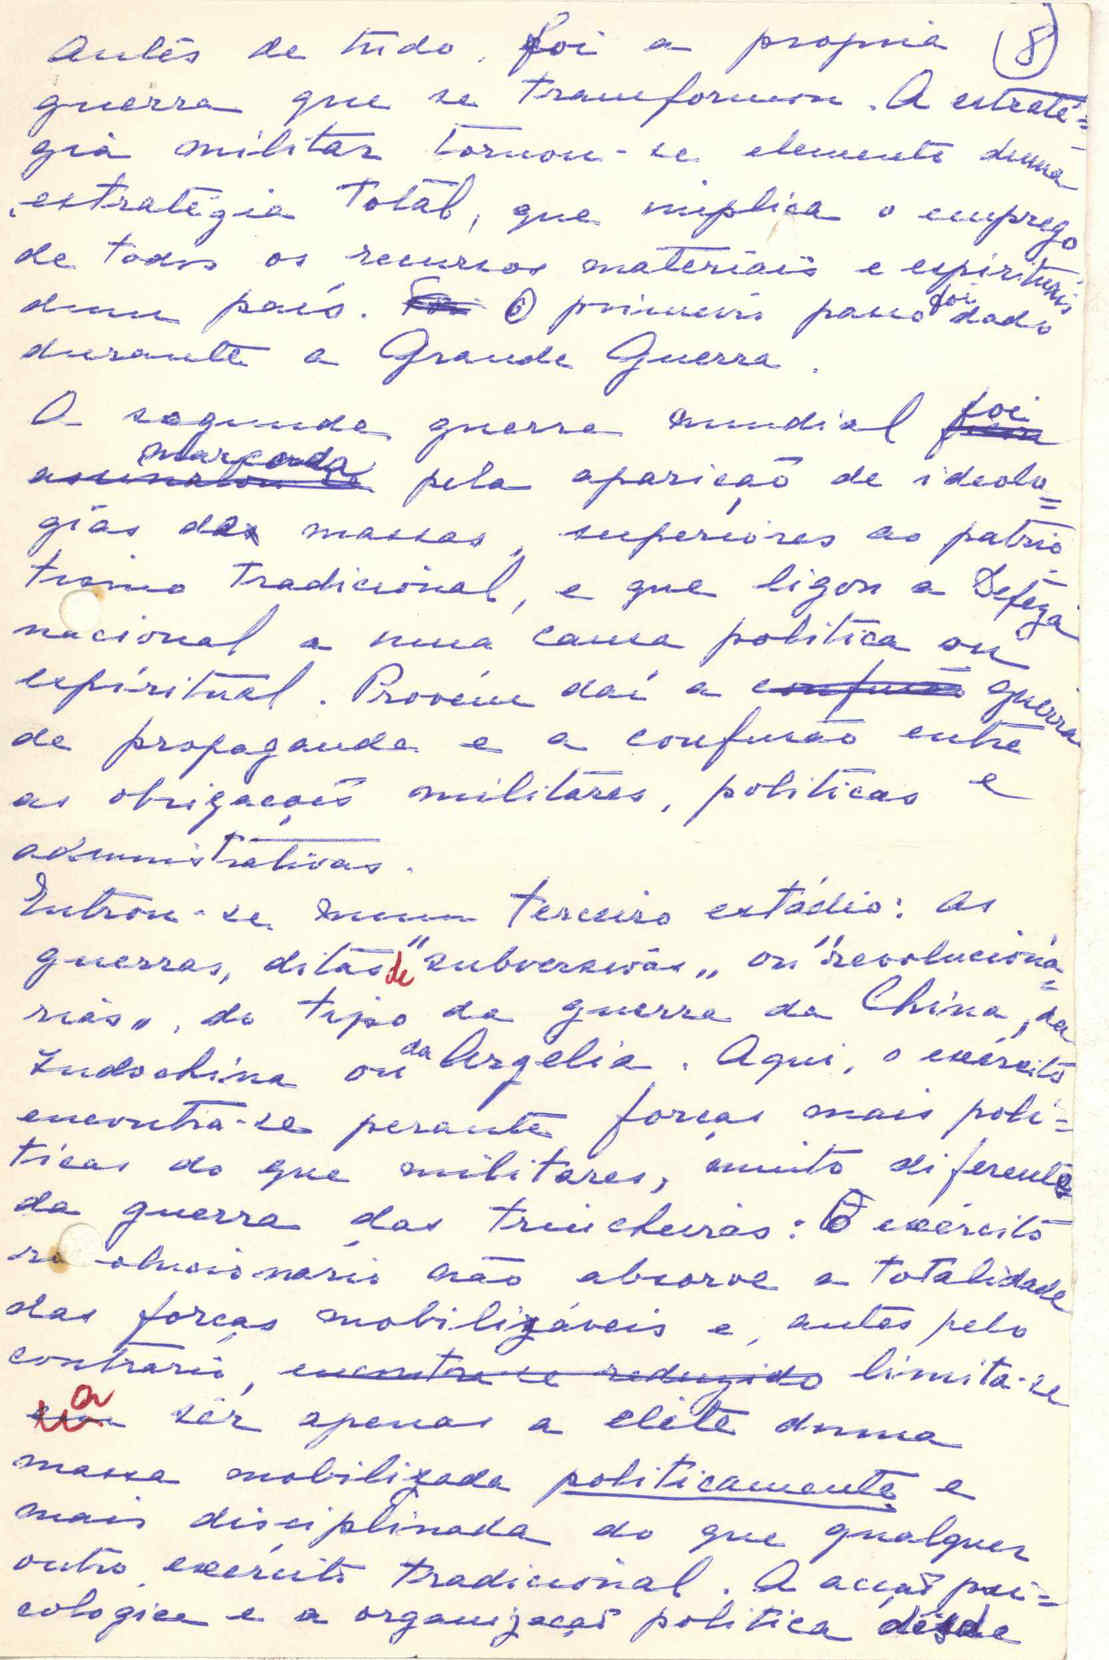 Antes de tudo, foi a propria (8)
guerra que se transformou. A estraté=
gia militar tornou-se elemento duma
estratégia total, que implica o emprego
de todos os recursos materiais e espirituais
dum país. Foi O primeiro passo foi dado
durante a Grande Guerra.
A segunda guerra mundial foi
marcada pela aparição de ideolo=
gias das massas, superiores ao patrio-
tismo tradicional, e que ligou a Defeza
nacional a uma causa politica ou
espiritual. Provém daí a confusão guerra
de propaganda e a confusão entre
as obrigações militares, politicas e
administrativas.
Entrou-se num terceiro estádio: as
guerras, ditas de "subversivas" ou "revolucioná=
rias", do tipo da guerra da China, da
Indochina ou da Argelia. Aqui, o exército
encontra-se perante forças mais polí=
ticas do que militares, muito diferentes
da guerra das trincheiras: O exército
revolucionário não absorve a totalidade
das forças mobilizáveis e, antes pelo
contrario, encontra-se reduzido limita-se
a sêr apenas a elite duma
massa mobilizada politicamente e
mais disciplinada do que qualquer
outro exército tradicional. A acção psi=
cologica e a organização politica désde